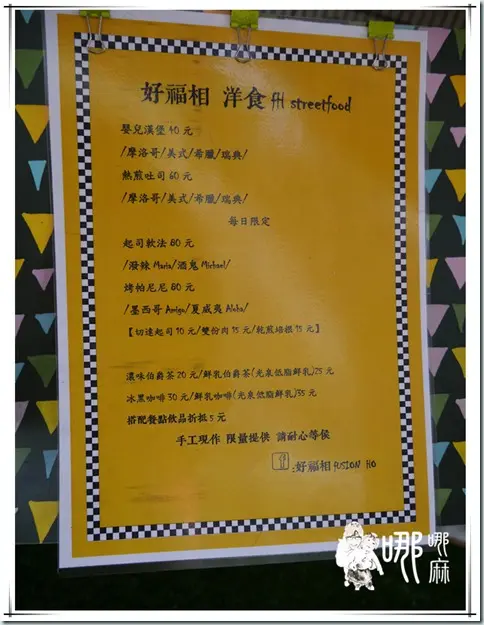 好福相 洋食 fH streetfood
嬰兒漢堡 40 元
/摩洛哥/美式/希臘/瑞典/
熱煎吐司 60 元
/摩洛哥/美式/希臘/瑞典/
每日限定
起司軟法 80 元
/潑辣 Maria/酒鬼 Michael/
烤帕尼尼 80 元
/墨西哥 Amigo/夏威夷 Aloha/
【切達起司 10 元/雙份肉 15 元/乾煎培根 15 元】
濃味伯爵茶 20 元/鮮乳伯爵茶(光泉低脂鮮乳)25 元
冰黑咖啡 30 元/鮮乳咖啡(光泉低脂鮮乳)35 元
搭配餐點飲品折抵 5 元
手工現作 限量提供 請耐心等侯
:好福相 FUSION HO
哪哪麻